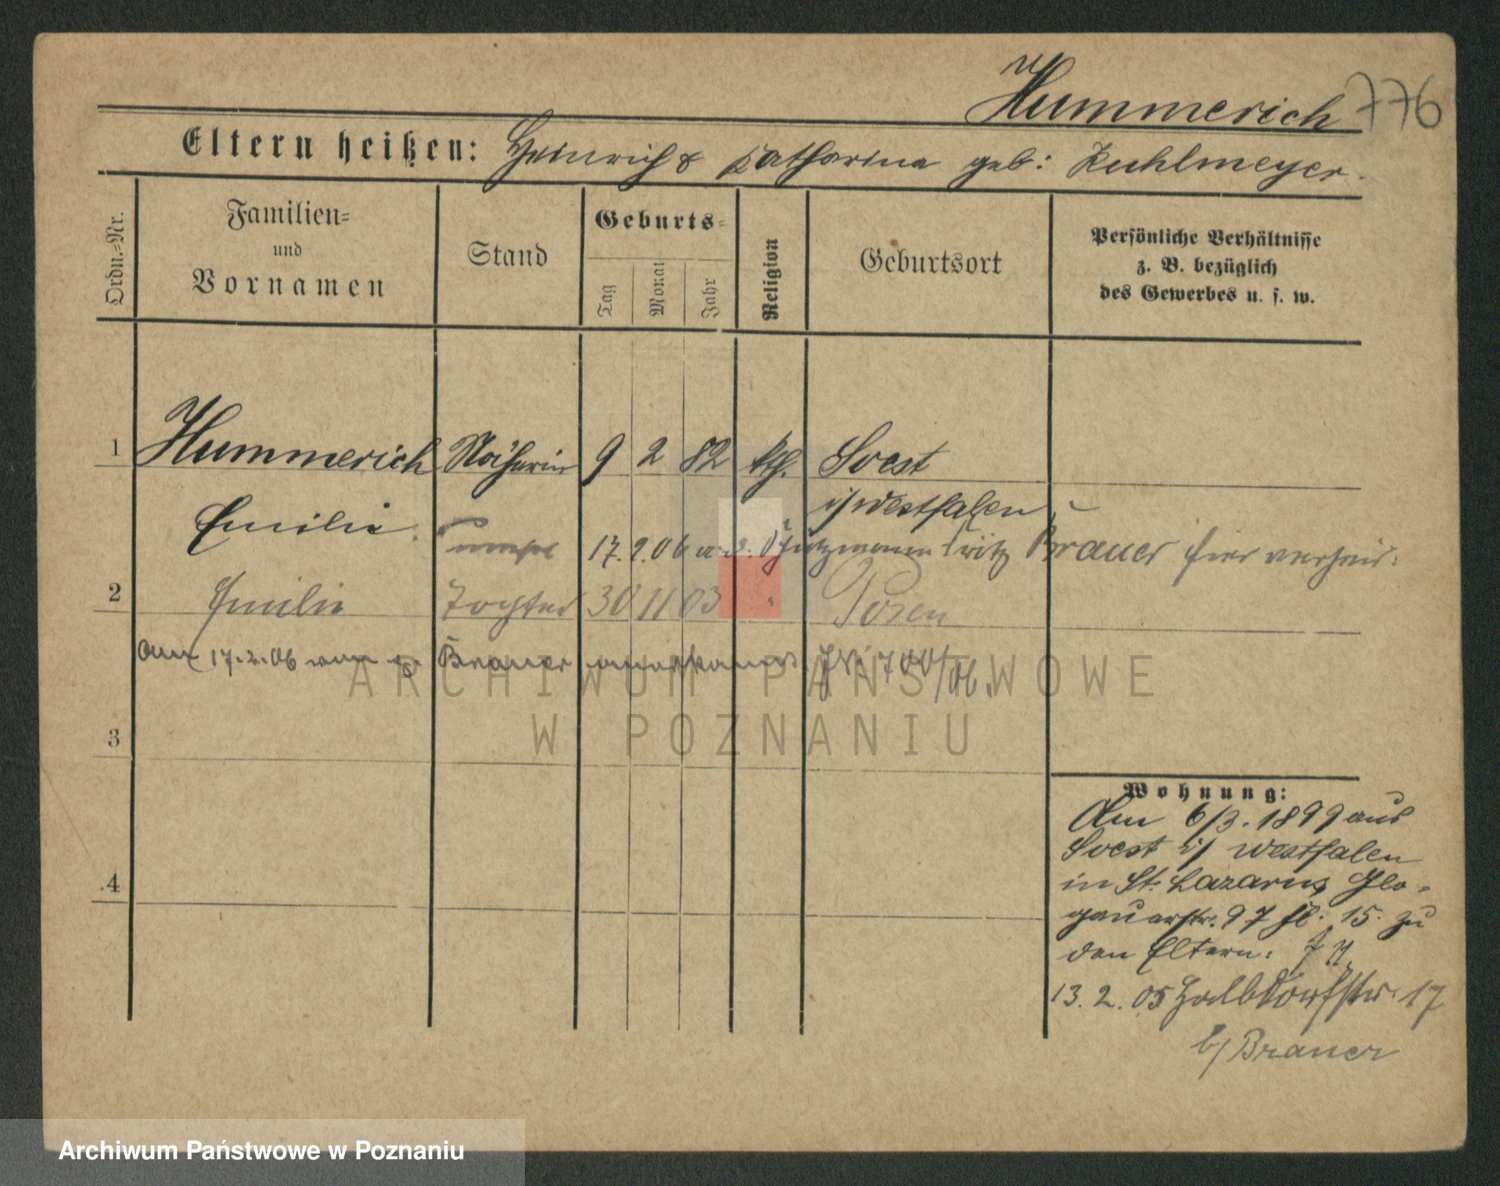 Hummerich 776
Eltern heißen: Heinrich & Katharina geb: Kuhlmeyer.
Ordn.=Nr.
Familien=
und
Vornamen
Stand
Geburts=
Tag
Monat
Jahr
Religion
Geburtsort
Persönliche Verhältnisse
z. B. bezüglich
des Gewerbes u. s. w.
1 Hummerich Näherin 9 2 82 kth. Soest
Emilie i/ Westfalen
17.2.06 a. d. Schutzmann Fritz Brauer hier verheir:
2 Emilie Tochter 30 11 03 " Posen
Am 17.2.06 vom Brauer anerkannt. 700/06.
3
4
Wohnung:
Am 6/3. 1899 aus
Soest i/ Westfalen
in St. Lazarus Glo-
gauerstr. 97 15. zu
den Eltern.
13. 2. 05 Halbdorfstr. 17
b/ Brauer
ARCHIWUM PAŃSTWOWE
W POZNANIU
Archiwum Państwowe w Poznaniu